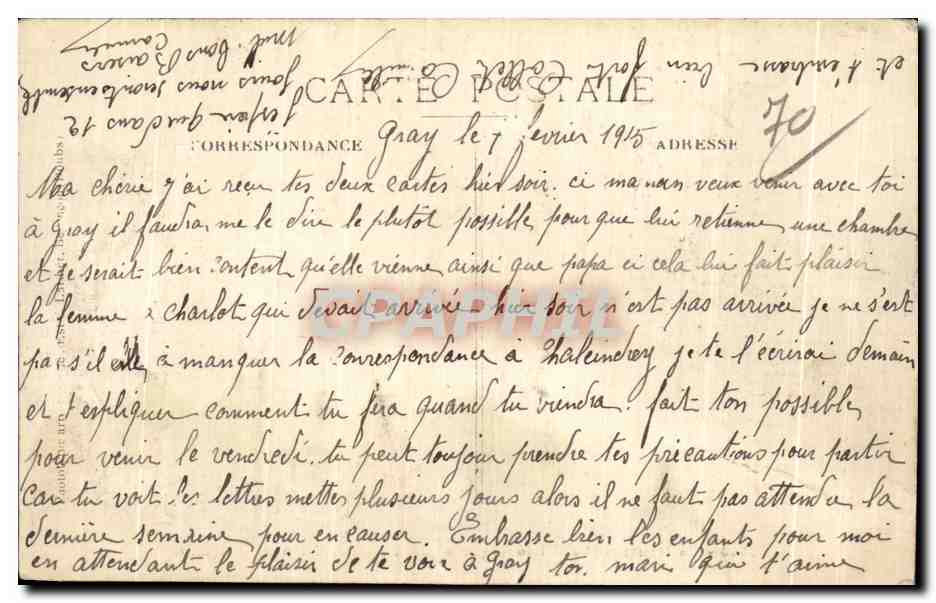 CARTE POSTALE
CORRESPONDANCE
ADRESSE
70
Gray le 7 fevrier 1915
Ma chérie j'ai reçu tes deux cartes hier soir. ci maman veux venir avec toi
à Gray il faudra me le dire le plutot possible pour que lui retienne une chambre
et je serait bien content qu'elle vienne ainsi que papa ci cela lui fait plaisir
la femme a charlot qui devait arrivée hier soir n'est pas arrivée je ne s'est
pas s'il elle à manquer la correspondance à Chalendrey je te l'écrirai demain
et t'espliquer comment tu fera quand tu viendra. fait ton possible
pour venir le vendredi. tu peut toujour prendre tes précautions pour partir
car tu voit les lettres mettes plusieurs jours alors il ne faut pas attendre la
dernière semaine pour en causer. Embrasse bien les enfants pour moi
en attendant le plaisir de te voir à Gray ton mari qui t'aime
et t'embrasse bien fort Collet
J'espèir que dans 12
jours nous seront ensemble
Mil bons Baisers
CPAPHIL